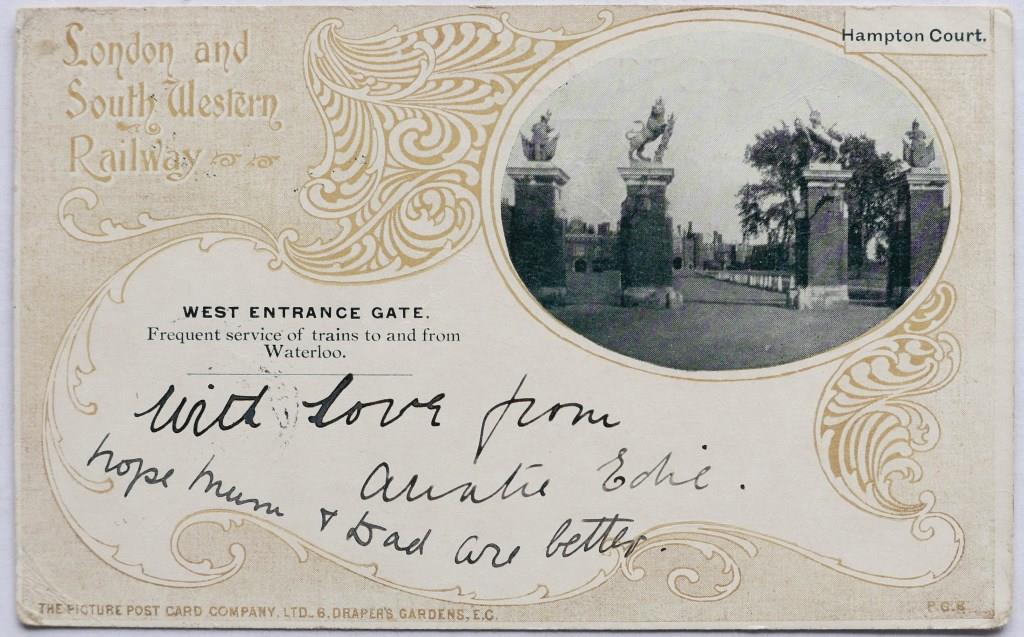 London and
South Western
Railway
Hampton Court.
WEST ENTRANCE GATE.
Frequent service of trains to and from
Waterloo.
With love from
Auntie Edie.
hope Mum & Dad are better.
THE PICTURE POST CARD COMPANY, LTD. 6, DRAPER'S GARDENS, E.C.